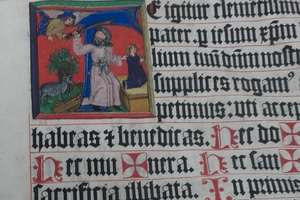 E igitur clementissim
pater. p iesum xpm
lium tuū dnm nost
supplices rogam⁹
petimus: uti accep
habeas ⁊ benedicas. Hec do
Hec mu ✠ nera. Hec san
sacrificia illibata. In primis